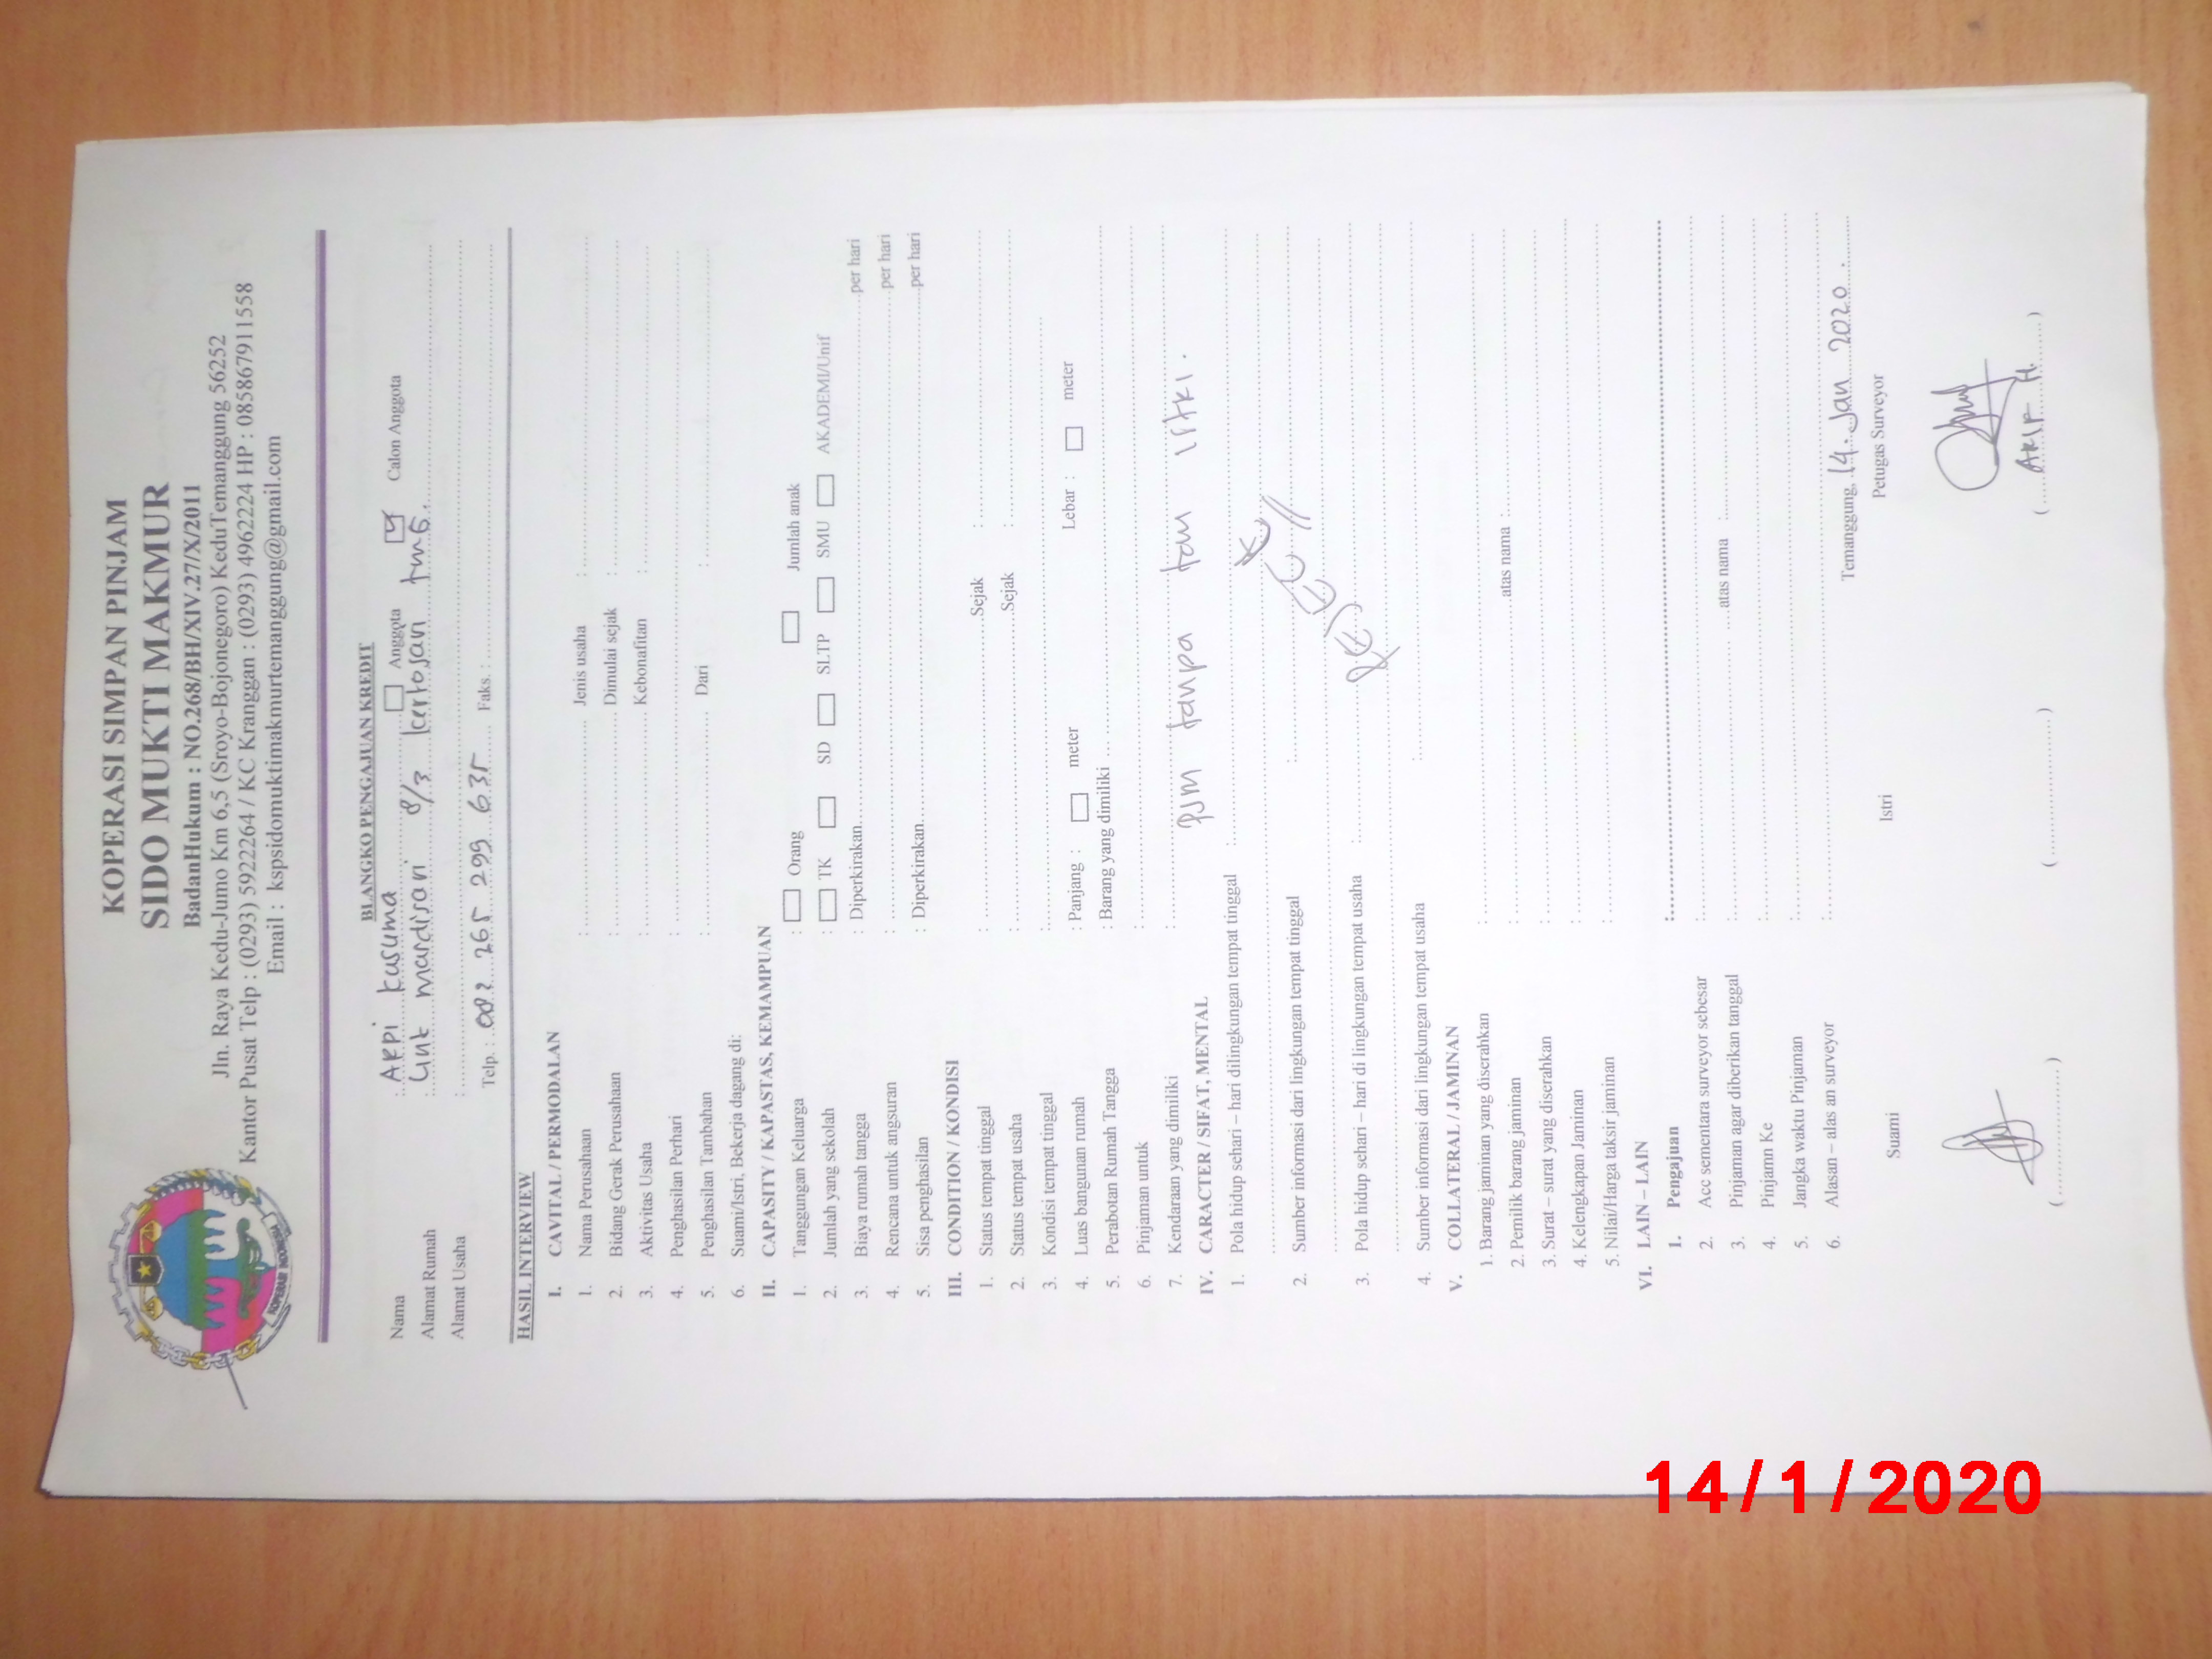 KOPERASI SIMPAN PINJAM
SIDO MUKTI MAKMUR
BadanHukum : NO.268/BH/XIV.27/X/2011
Jln. Raya Kedu-Jumo Km 6,5 (Sroyo-Bojonegoro) KeduTemanggung 56252
Kantor Pusat Telp : (0293) 5922264 / KC Kranggan : (0293) 4962224 HP : 085867911558
Email : kspsidomuktimakmurtemanggung@gmail.com
KOPERASI INDONESIA
BLANGKO PENGAJUAN KREDIT
Nama : ARPI kusuma Anggota Calon Anggota
Alamat Rumah : Lint mardisari 8/3 kertosari tmg.
Alamat Usaha :
Telp. : 082 265 299 635 Faks. :
HASIL INTERVIEW
I. CAVITAL / PERMODALAN
1. Nama Perusahaan : Jenis usaha :
2. Bidang Gerak Perusahaan : Dimulai sejak :
3. Aktivitas Usaha : Kebonafitan :
4. Penghasilan Perhari :
5. Penghasilan Tambahan : Dari :
6. Suami/Istri, Bekerja dagang di:
II. CAPASITY / KAPASTAS, KEMAMPUAN
1. Tanggungan Keluarga : Orang Jumlah anak
2. Jumlah yang sekolah : TK SD SLTP SMU AKADEMI/Unif
3. Biaya rumah tangga : Diperkirakan per hari
4. Rencana untuk angsuran : per hari
5. Sisa penghasilan : Diperkirakan per hari
III. CONDITION / KONDISI
1. Status tempat tinggal : Sejak :
2. Status tempat usaha : Sejak :
3. Kondisi tempat tinggal :
4. Luas bangunan rumah : Panjang : meter Lebar : meter
5. Perabotan Rumah Tangga : Barang yang dimiliki
6. Pinjaman untuk :
7. Kendaraan yang dimiliki : PJM tanpa tau istri.
IV. CARACTER / SIFAT, MENTAL
1. Pola hidup sehari – hari dilingkungan tempat tinggal :
2. Sumber informasi dari lingkungan tempat tinggal :
3. Pola hidup sehari – hari di lingkungan tempat usaha :
4. Sumber informasi dari lingkungan tempat usaha :
V. COLLATERAL / JAMINAN
1. Barang jaminan yang diserahkan :
2. Pemilik barang jaminan : atas nama :
3. Surat – surat yang diserahkan :
4. Kelengkapan Jaminan :
5. Nilai/Harga taksir jaminan :
VI. LAIN – LAIN
1. Pengajuan :
2. Acc sementara surveyor sebesar :
3. Pinjaman agar diberikan tanggal : atas nama :
4. Pinjamn Ke :
5. Jangka waktu Pinjaman :
6. Alasan – alas an surveyor :
Temanggung, 14 Jan 2020
Suami Istri Petugas Surveyor
( ) ( ) ( ARIF H. )
14/1/2020